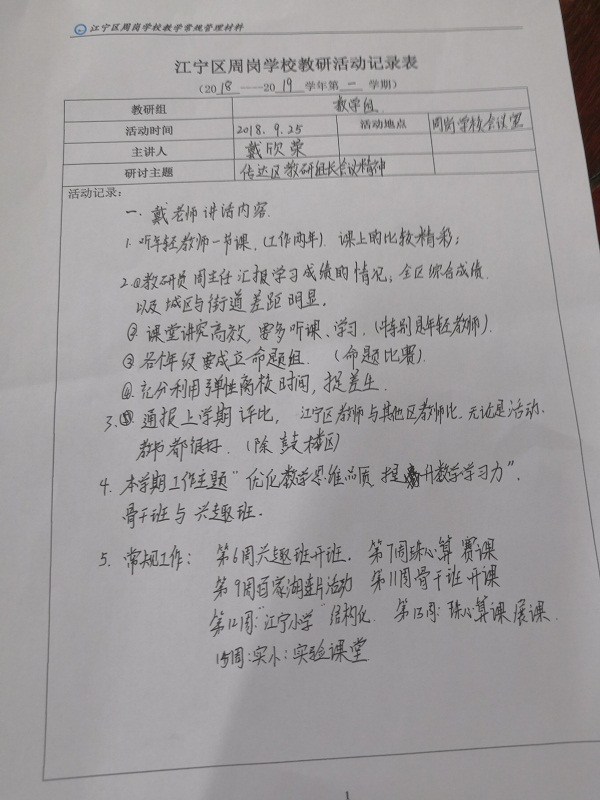 江宁区周岗学校教学常规管理材料
江宁区周岗学校教研活动记录表
(2018——2019学年第一学期)
教研组 数学组
活动时间 2018.9.25 活动地点 周岗学校会议室
主讲人 戴欣荣
研讨主题 传达区教研组长会议精神
活动记录:
一、戴老师讲话内容.
1. 听年轻教师一节课,(工作两年). 课上的比较精彩;
2.①教研员周主任汇报学习成绩的情况,全区综合成绩
以及城区与街道差距明显。
② 课堂讲究高效,要多听课、学习.(特别是年轻教师).
③ 各个年级要成立命题组. (命题比赛).
④ 充分利用弹性离校时间,提差生.
3. 通报上学期评比, 江宁区教师与其他区教师比.无论是活动.
教书都很好. (除鼓楼区)
4. 本学期工作主题“优化数学思维品质 提升数学学习力”.
骨干班与兴趣班.
5. 常规工作: 第6周兴趣班开班. 第7周珠心算赛课
第9周百家湖片活动 第11周骨干班开课
第12周:“江宁小学”结构化. 第13周:珠心算课展课.
15周:实小:实验课堂.
1